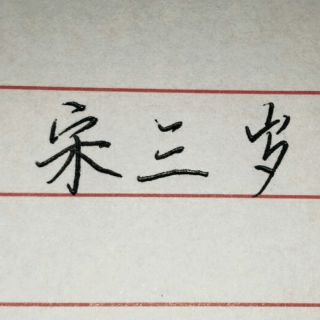 宋三岁